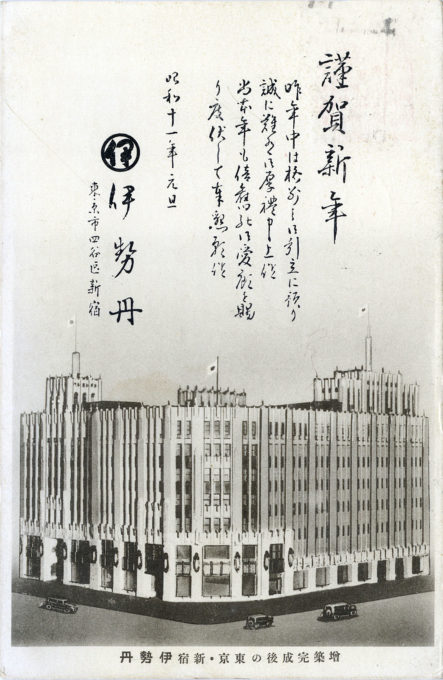 謹賀新年
昨年中は格別之御引立に預り
誠に難有御厚禮申上候
尚本年も倍舊の御愛顧を賜
り度伏して奉懇願候
昭和十一年元旦
伊
伊勢丹
東京市四谷区新宿
增築完成後の東京・新宿伊勢丹